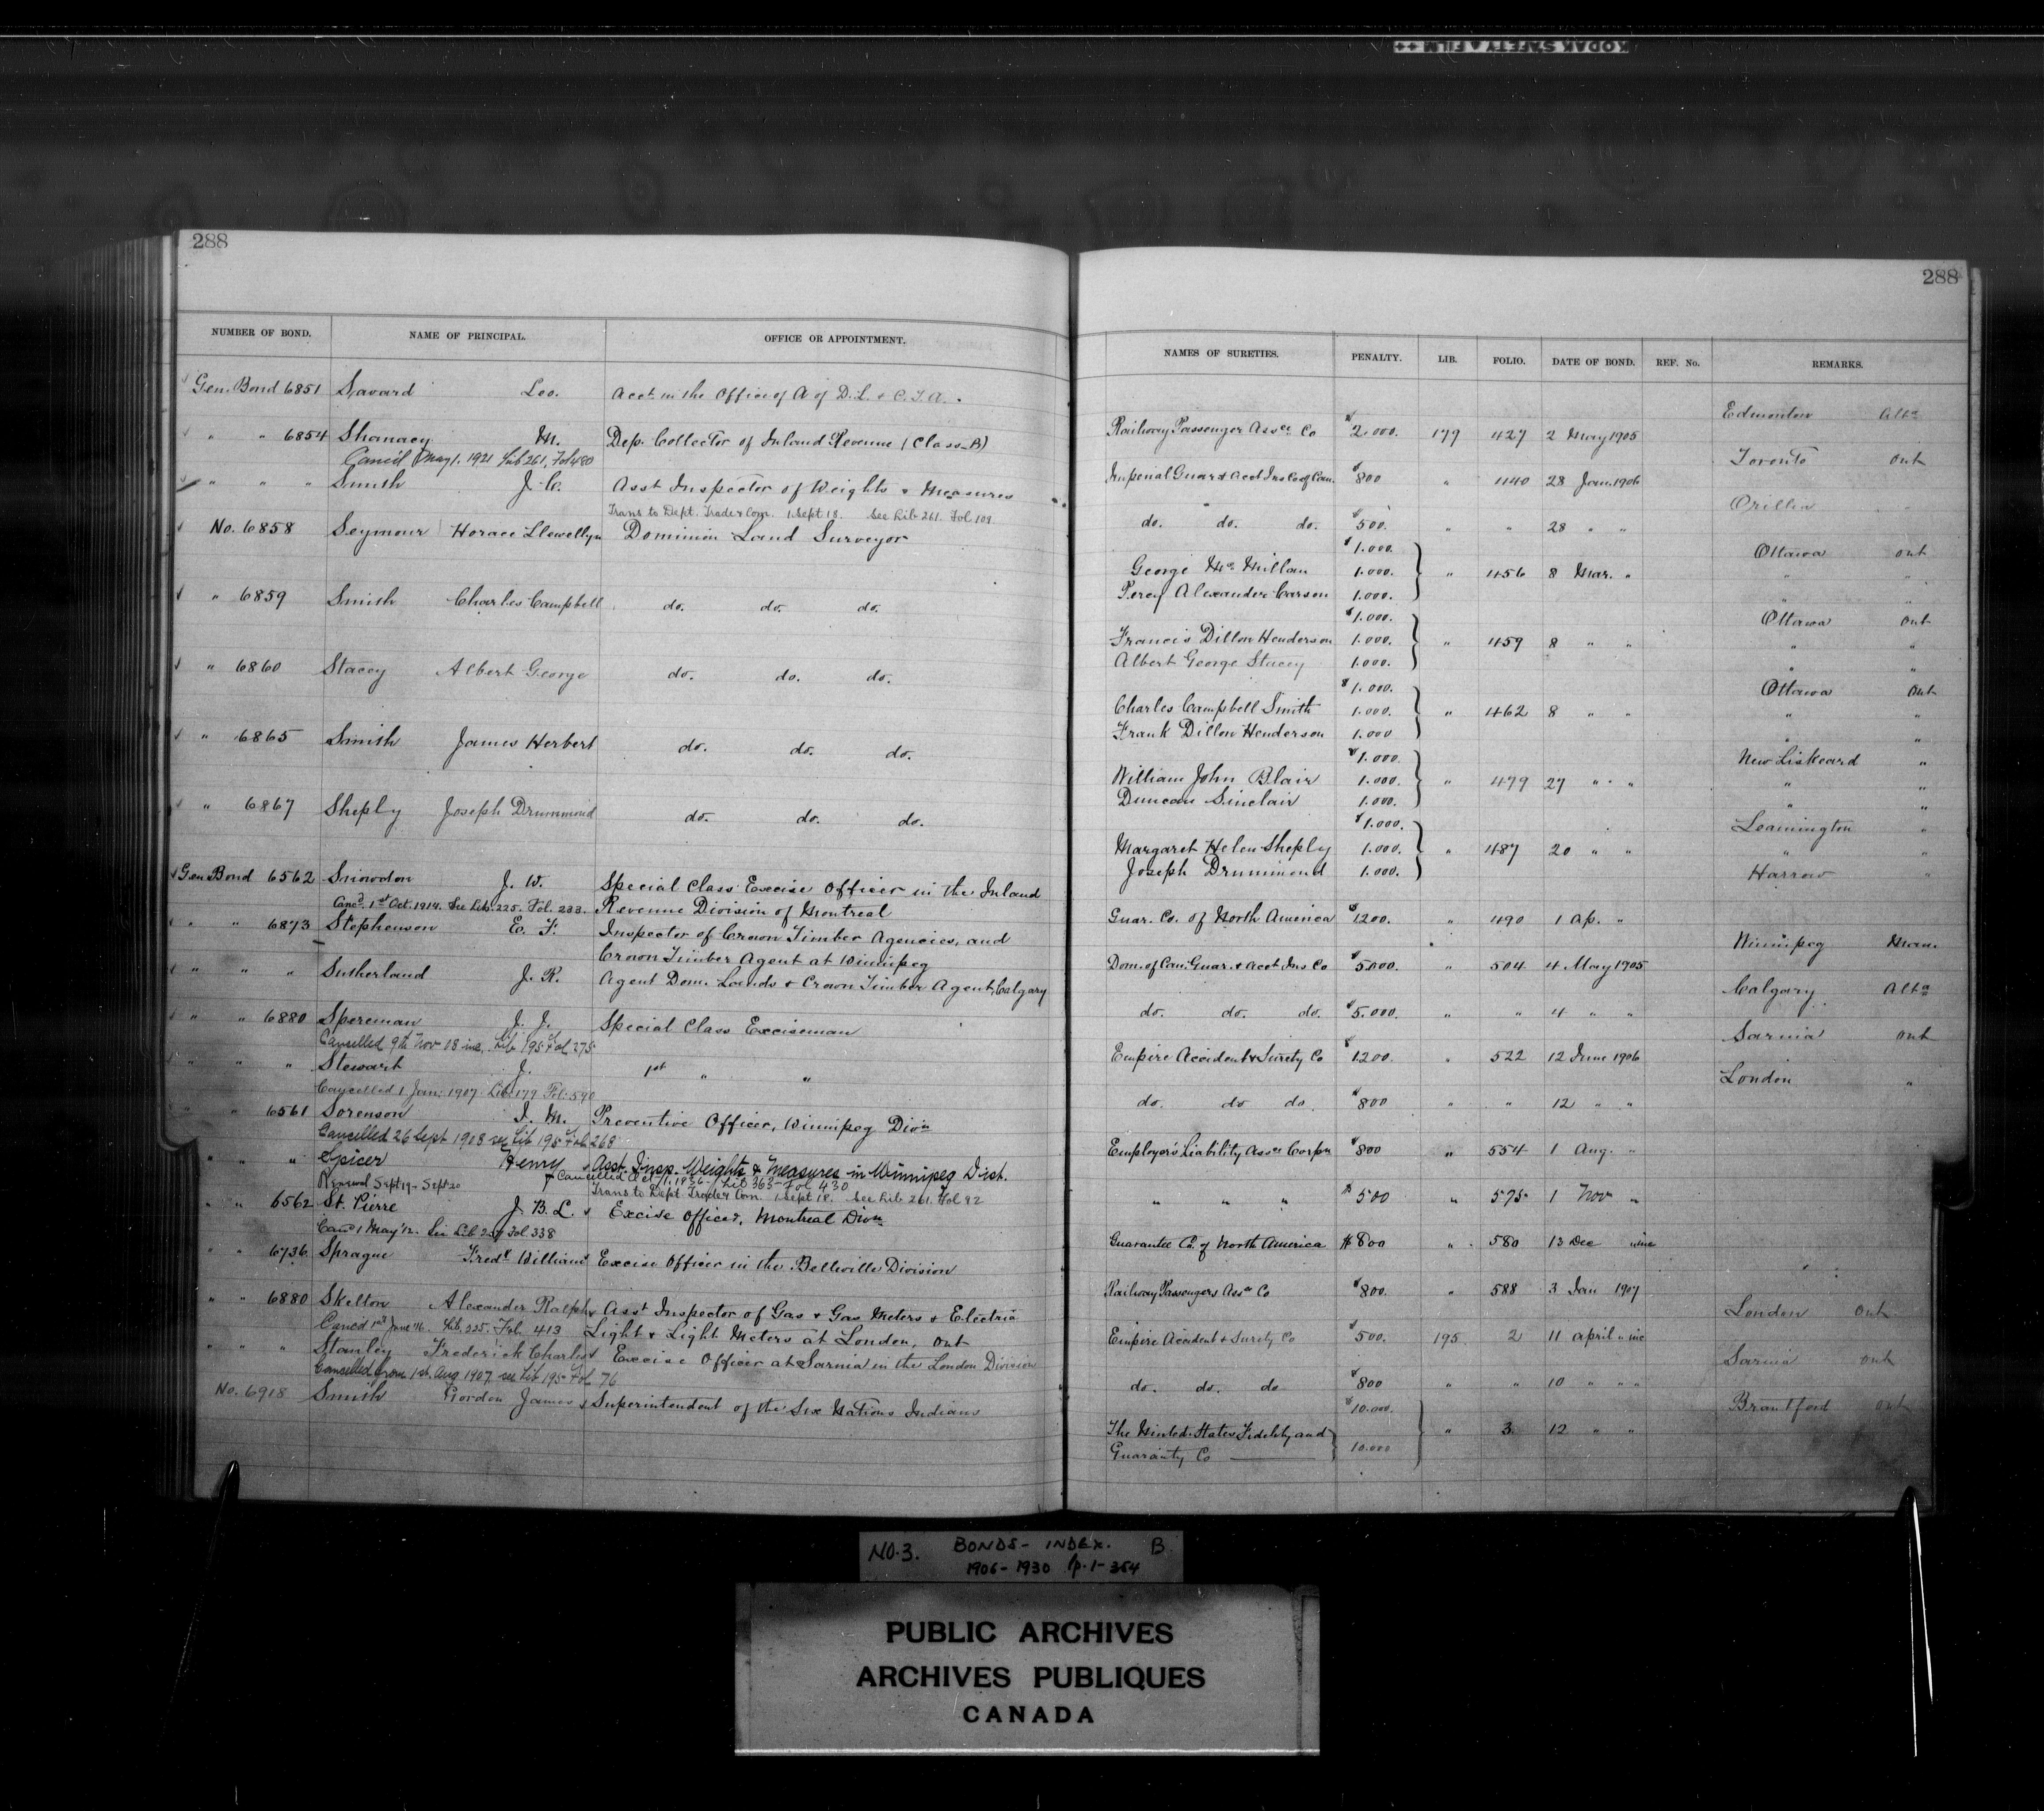 KODAK SAFETY FILM ++
288
NUMBER OF BOND. NAME OF PRINCIPAL. OFFICE OR APPOINTMENT.
Gen. Bond 6851 Savard Leo. Acct. in the Office of A. of D. L. & C. T. A.
" " 6854 Shanacy M. Dep. Collector of Inland Revenue (Class B)
Canc'd May 1. 1921 Lib 261, Fol 480
" " " Smith J. C. Asst Inspector of Weights & Measures
Trans to Dept. Trade & Com. 1 Sept 18. See Lib 261. Fol 109.
No. 6858 Seymour Horace Llewellyn Dominion Land Surveyor
" 6859 Smith Charles Campbell do. do. do.
" 6860 Stacey Albert George do. do. do.
" 6865 Smith James Herbert do. do. do.
" 6867 Sheply Joseph Drummond do. do. do.
Gen Bond 6562 Snowdon J. W. Special Class Excise Officer in the Inland
Canc'd. 1st Oct. 1914. See Lib. 225. Fol. 233. Revenue Division of Montreal
" " 6873 Stephenson E. F. Inspector of Crown Timber Agencies, and
Crown Timber Agent at Winnipeg
" " " Sutherland J. R. Agent Dom. Lands & Crown Timber Agent, Calgary
" " 6880 Spereman J. J. Special Class Exciseman
Cancelled 9th Nov 08 inc. Lib 195 Fol 275
" " " Stewart J. 1st " "
Cancelled 1 Jan. 1907. Lib 179 Fol. 590
" " 6561 Sorenson I. M. Preventive Officer, Winnipeg Divn
Cancelled 26 Sept 1908 see Lib 195 Fol 268
" " " Spicer Henry Asst. Insp. Weights & Measures in Winnipeg Dist.
Renewal Sept 19 - Sept 20 Cancelled Oct 1. 1936 - Lib 363 - Fol 430
Trans to Dept Trade & Com. 1 Sept 18. See Lib 261. Fol 92
" " 6562 St. Pierre J. B. L. Excise Officer, Montreal Divn.
Canc'd 1 May '12. See Lib Fol 338
" " 6736 Sprague Fredk William Excise Officer in the Belleville Division
" " 6880 Skelton Alexander Ralph Asst Inspector of Gas & Gas Meters & Electric
Canc'd 1st June '16. Lib. 225. Fol. 413 Light & Light Meters at London, Ont
" " " Stanley Frederick Charles Excise Officer at Sarnia in the London Division
Cancelled from 1st. Aug 1907. see Lib 195 Fol 76
No. 6918 Smith Gordon James Superintendent of the Six Nations Indians
288
NAMES OF SURETIES. PENALTY. LIB. FOLIO. DATE OF BOND. REF. No. REMARKS.
Edmonton Alta
Railway Passenger Assce Co $2.000. 179 427 2 May 1905
Toronto Ont
Imperial Guar & Acct Ins Co of Can. $800 " 440 28 Jan. 1906
Orillia "
do. do. do. $500. " " 28 " "
$1.000. Ottawa Ont
George McMillan 1.000. " 456 8 Mar. " " "
Percy Alexander Carson 1.000. " "
$1.000. Ottawa Ont
Francis Dillon Henderson 1.000. " 459 8 " " " "
Albert George Stacey 1.000. " "
$1.000. Ottawa Ont
Charles Campbell Smith 1.000. " 462 8 " " " "
Frank Dillon Henderson 1.000 " "
$1.000. New Liskeard "
William John Blair 1.000. " 479 27 " " " "
Duncan Sinclair 1.000. " "
$1.000. Leamington "
Margaret Helen Sheply 1.000. " 487 20 " " " "
Joseph Drummond 1.000. Harrow "
Guar. Co. of North America $1200. " 490 1 Ap. "
Winnipeg Man.
Dom. of Can. Guar. & Acct Ins Co $5.000. " 504 4 May 1905
Calgary Alta
do. do. do. $5.000. " " 4 " "
Sarnia Ont
Empire Accident & Surety Co $1200. " 522 12 June 1906
London "
do. do do. $800 " " 12 " "
Employer's Liability Assce Corpn $800 " 554 1 Aug. "
" " " $500 " 575 1 Nov "
Guarantee Co. of North America $800 " 580 13 Dec " inc
Railway Passengers Assce Co $800. " 588 3 Jan 1907
London Ont
Empire Accident & Surety Co $500. 195 2 11 April " inc
Sarnia Ont
do. do. do $800 " " 10 " " "
$10.000. Brantford Ont
The United States Fidelity and " 3. 12 " "
Guaranty Co 10.000
NO. 3. BONDS - INDEX. B.
1906 - 1930 p. 1 - 354
PUBLIC ARCHIVES
ARCHIVES PUBLIQUES
CANADA